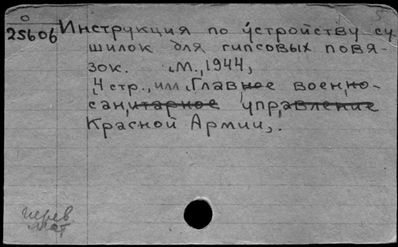 0
25606 Инструкция по устройству су
шилок для гипсовых повя-
зок. М., 1944,
4 стр., илл. Главное военно-
санитарное управление
Красной Армии,.